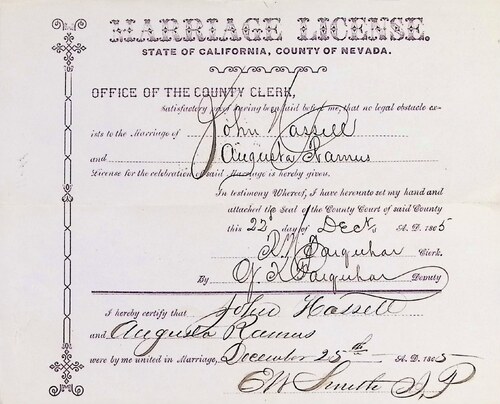 MARRIAGE LICENSE.
STATE OF CALIFORNIA, COUNTY OF NEVADA.
OFFICE OF THE COUNTY CLERK,
Satisfactory proof having been laid before me, that no legal obstacle ex-
ists to the Marriage of John Hassell
and Augusta Ramus
License for the celebration of said Marriage is hereby given.
In testimony Whereof, I have hereunto set my hand and
attached the Seal of the County Court of said County
this 22 day of Dec A. D. 1865
R. H. Farquhar Clerk.
By Farquhar Deputy
I hereby certify that John Hassell
and Augusta Ramus
were by me united in Marriage, December 25th A. D. 1865
E W Smith J, P